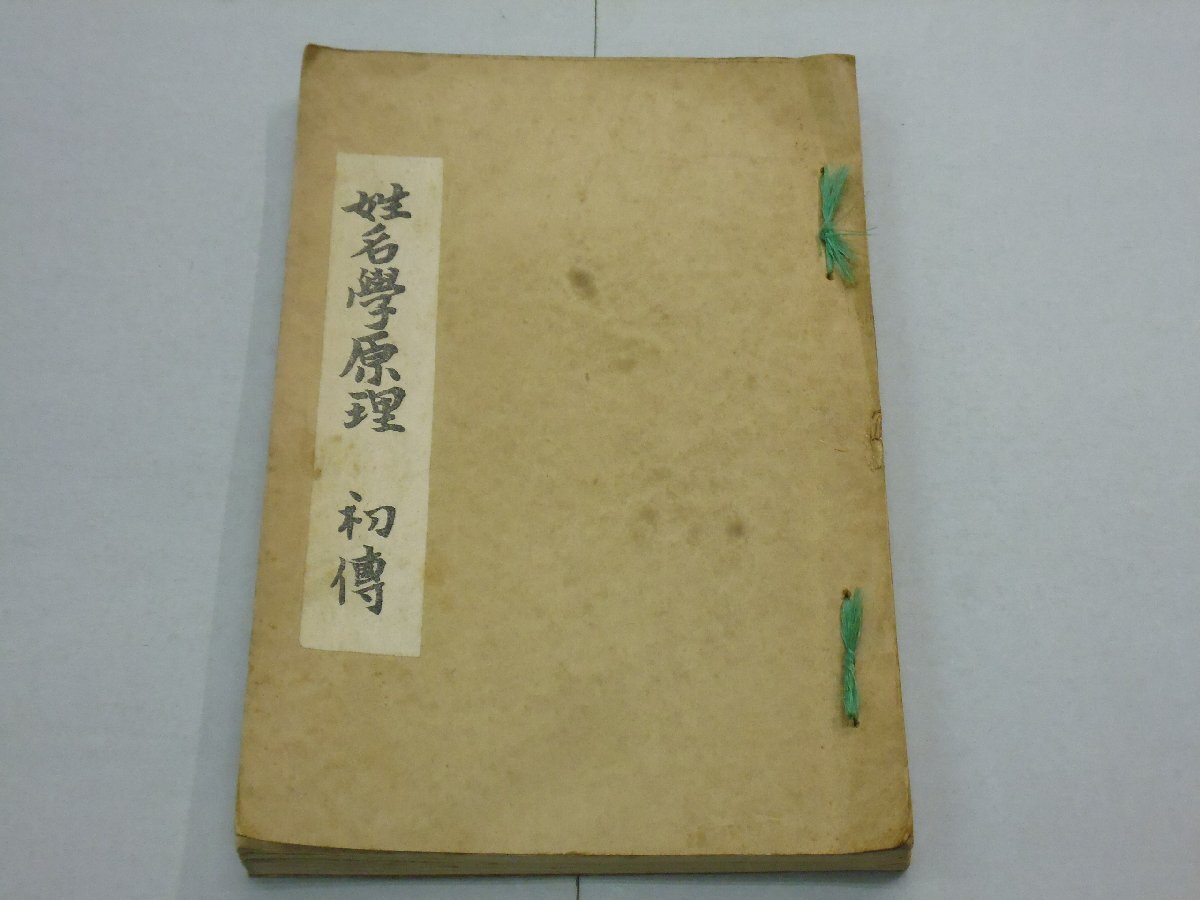 姓名學原理 初傳